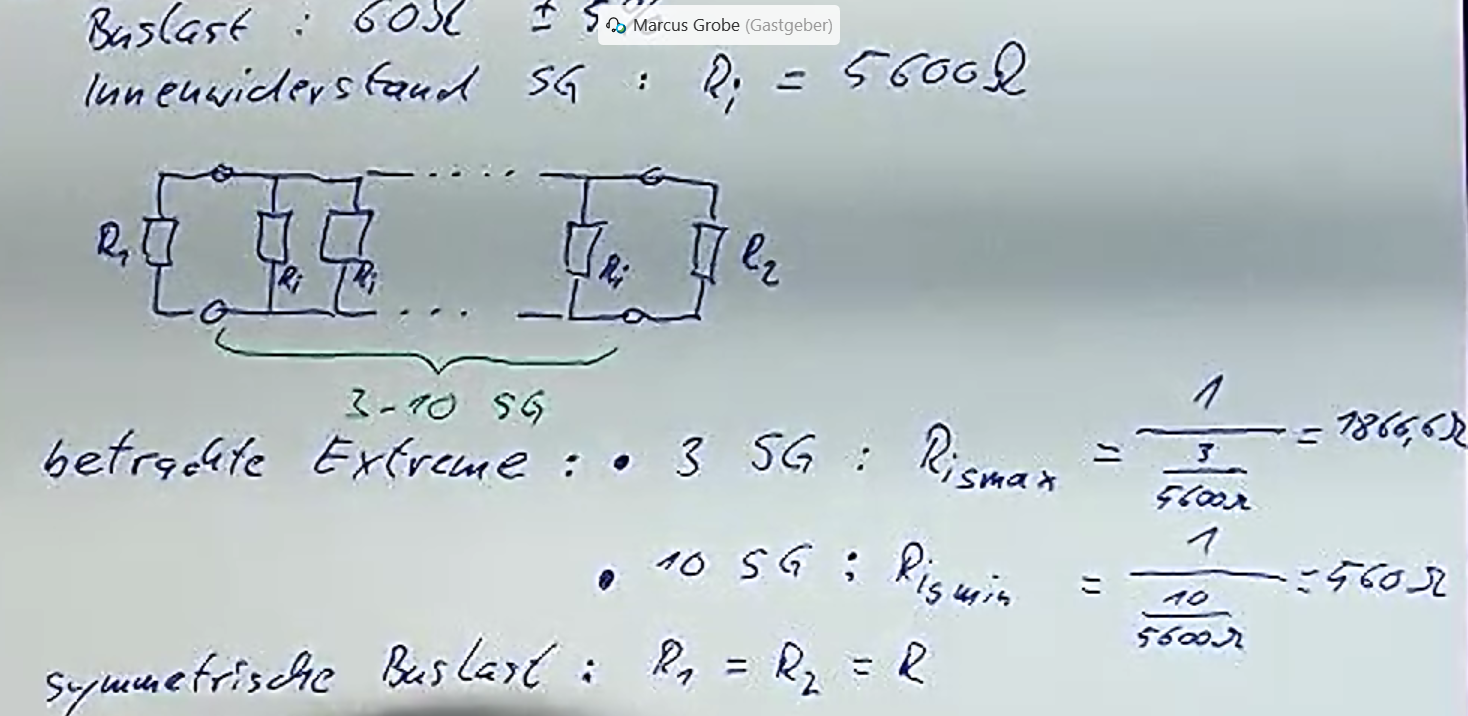 Buslast : 60Ω ± 5
Marcus Grobe (Gastgeber)
Innenwiderstand SG : Ri = 5600Ω
R1 Ri Ri Ri R2
3-10 SG
betrachte Extreme : • 3 SG : Rismax = 1 / (3 / 5600Ω) = 1866,6Ω
• 10 SG : Rismin = 1 / (10 / 5600Ω) = 560Ω
symmetrische Buslast : R1 = R2 = R